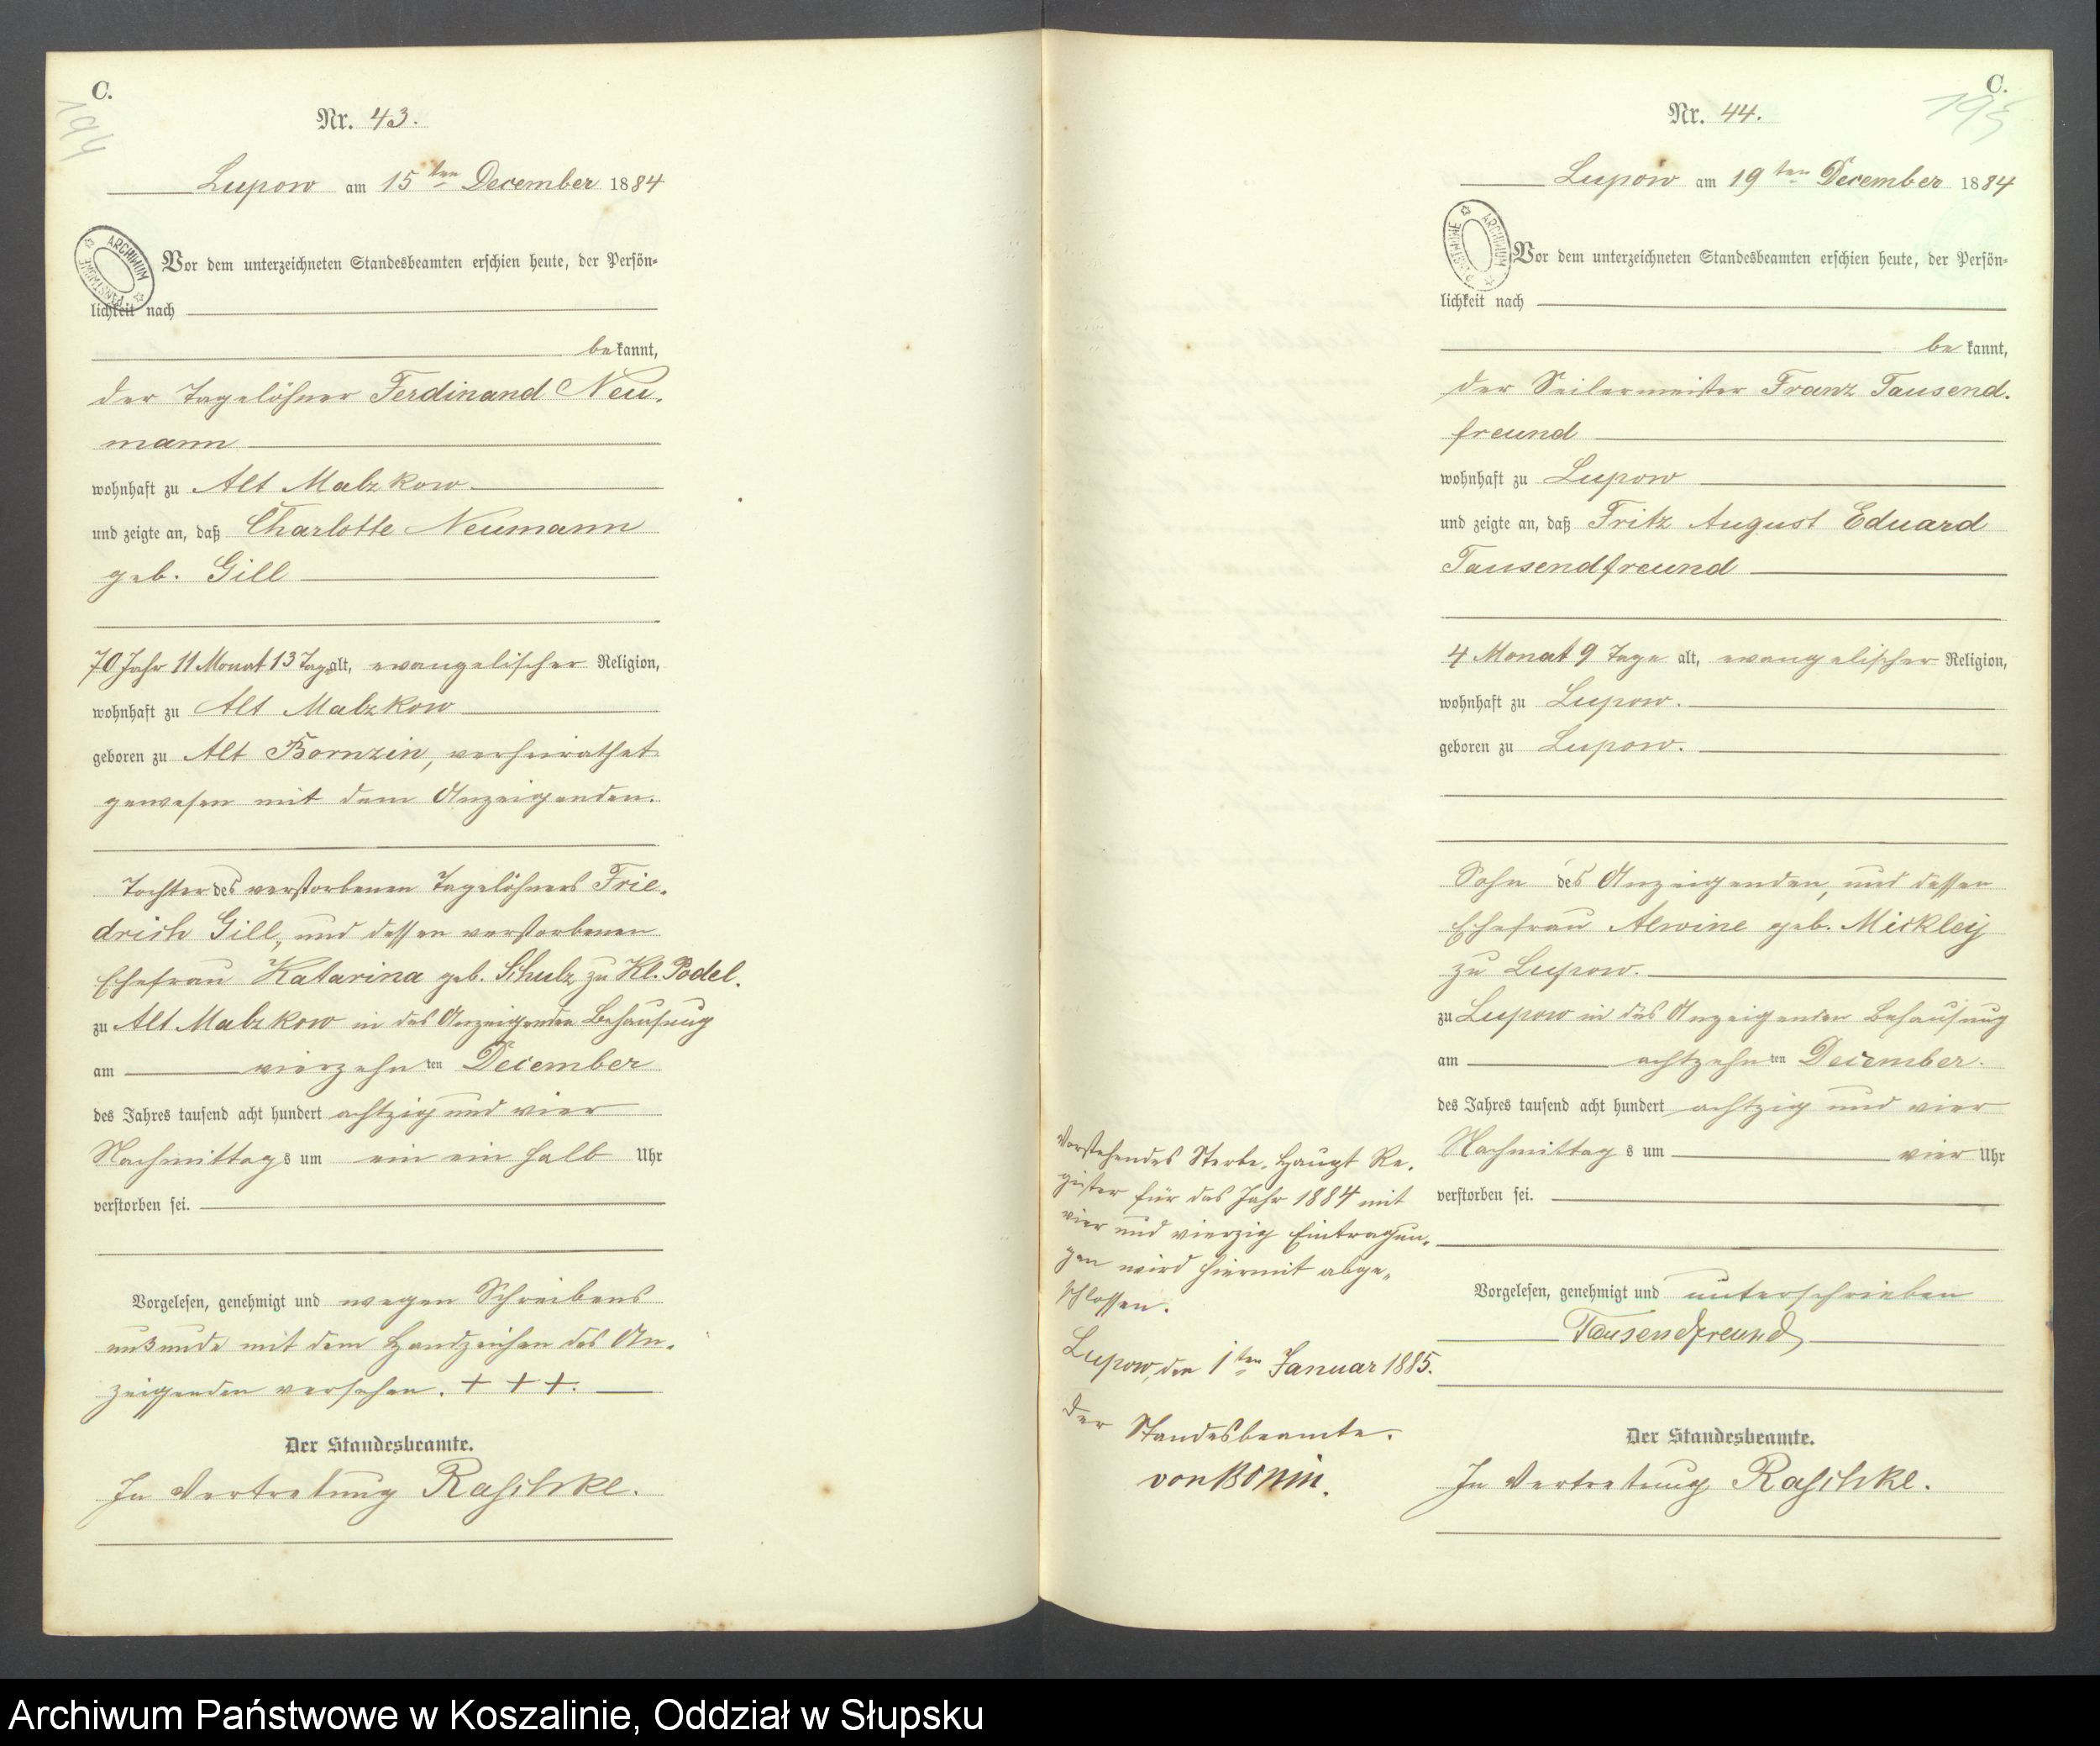 C.
194
Nr. 43.
Lupow am 15ten December 1884
ARCHIWUM PAŃSTWOWE
Vor dem unterzeichneten Standesbeamten erschien heute, der Persön-
lichkeit nach
bekannt,
der Tagelöhner Ferdinand Neu-
mann
wohnhaft zu Alt Malzkow
und zeigte an, daß Charlotte Neumann
geb. Gill
70 Jahr 11 Monat 13 Tage alt, evangelischer Religion,
wohnhaft zu Alt Malzkow
geboren zu Alt Bornzin, verheirathet
gewesen mit dem Anzeigenden.
Tochter des verstorbenen Tagelöhners Frie-
drich Gill, und dessen verstorbenen
Ehefrau Katarina geb. Schulz zu Kl. Podel.
zu Alt Malzkow in des Anzeigenden Behausung
am vierzehnten December
des Jahres tausend acht hundert achtzig und vier
Nachmittags um ein ein halb Uhr
verstorben sei.
Vorgelesen, genehmigt und wegen Schreibens
unkunde mit dem Handzeichen des An-
zeigenden versehen. + + +.
Der Standesbeamte.
In Vertretung Raschke.
Vorstehendes Sterbe-Haupt Re-
gister für das Jahr 1884 mit
vier und vierzig Eintragun-
gen wird hiermit abge-
schlossen.
Lupow, den 1ten Januar 1885.
Der Standesbeamte.
von Bonin.
C.
195
Nr. 44.
Lupow am 19ten December 1884
ARCHIWUM PAŃSTWOWE
Vor dem unterzeichneten Standesbeamten erschien heute, der Persön-
lichkeit nach
bekannt,
der Seilermeister Franz Tausend-
freund
wohnhaft zu Lupow
und zeigte an, daß Fritz August Eduard
Tausendfreund
4 Monat 9 Tage alt, evangelischer Religion,
wohnhaft zu Lupow.
geboren zu Lupow.
Sohn des Anzeigenden, und dessen
Ehefrau Alwine geb. Mickley
zu Lupow.
zu Lupow in des Anzeigenden Behausung
am achtzehnten December.
des Jahres tausend acht hundert achtzig und vier
Nachmittags um vier Uhr
verstorben sei.
Vorgelesen, genehmigt und unterschrieben
Tausendfreund
Der Standesbeamte.
In Vertretung Raschke.
Archiwum Państwowe w Koszalinie, Oddział w Słupsku